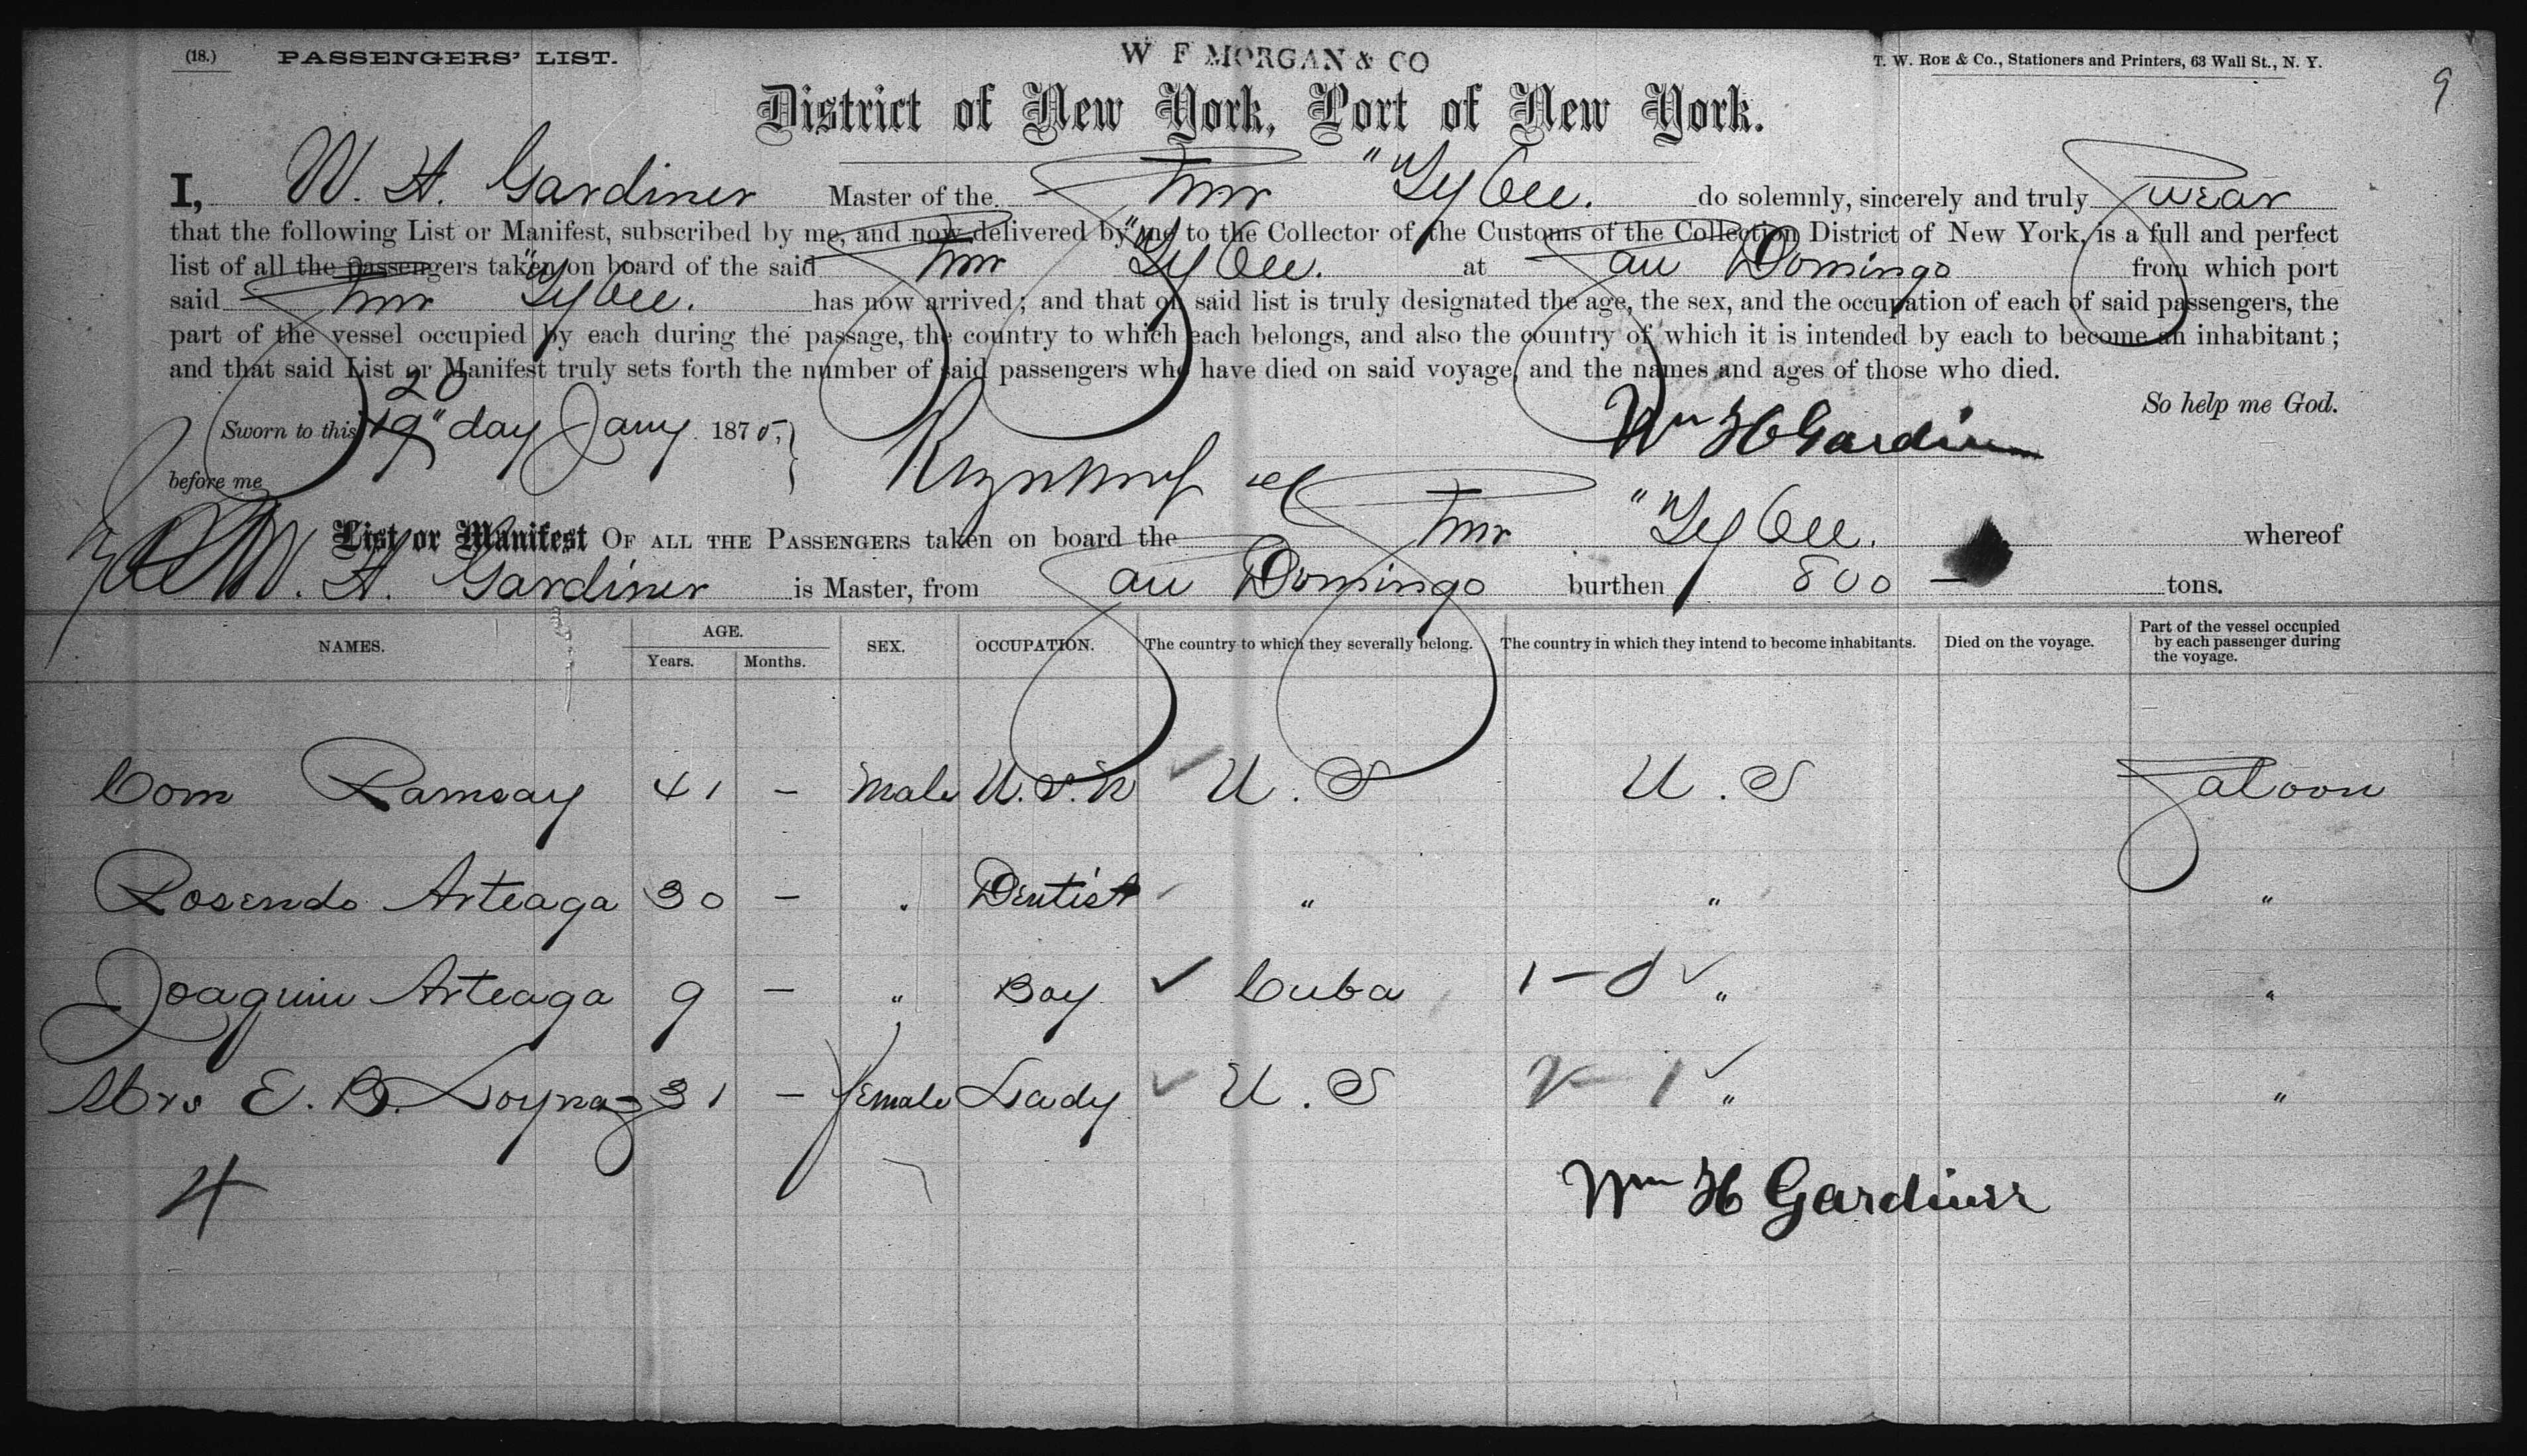 (18.) PASSENGERS' LIST. W F MORGAN & CO T. W. ROE & Co., Stationers and Printers, 63 Wall St., N. Y.
9
District of New York, Port of New York.
I, W. H. Gardiner Master of the Stmr "Tybee." do solemnly, sincerely and truly Swear
that the following List or Manifest, subscribed by me, and now delivered by me to the Collector of the Customs of the Collection District of New York, is a full and perfect
list of all the passengers taken on board of the said Stmr "Tybee. at San Domingo from which port
said Stmr "Tybee. has now arrived; and that on said list is truly designated the age, the sex, and the occupation of each of said passengers, the
part of the vessel occupied by each during the passage, the country to which each belongs, and also the country of which it is intended by each to become an inhabitant;
and that said List or Manifest truly sets forth the number of said passengers who have died on said voyage, and the names and ages of those who died.
So help me God.
20
Sworn to this 19" day Jany 1875, Wm H Gardiner
before me
List or Manifest OF ALL THE PASSENGERS taken on board the Stmr "Tybee. whereof
W. H. Gardiner is Master, from San Domingo burthen 800 — tons.
NAMES. AGE. Years. Months. SEX. OCCUPATION. The country to which they severally belong. The country in which they intend to become inhabitants. Died on the voyage. Part of the vessel occupied by each passenger during the voyage.
Com Ramsay 41 – Male U.S.N U.S U.S Saloon
Rosendo Arteaga 30 – " Dentist " " "
Joaquin Arteaga 9 – " Boy Cuba 1 – " "
Mrs E. B. Loynaz 31 – female Lady U.S 2 – 1 " "
4 Wm H Gardiner